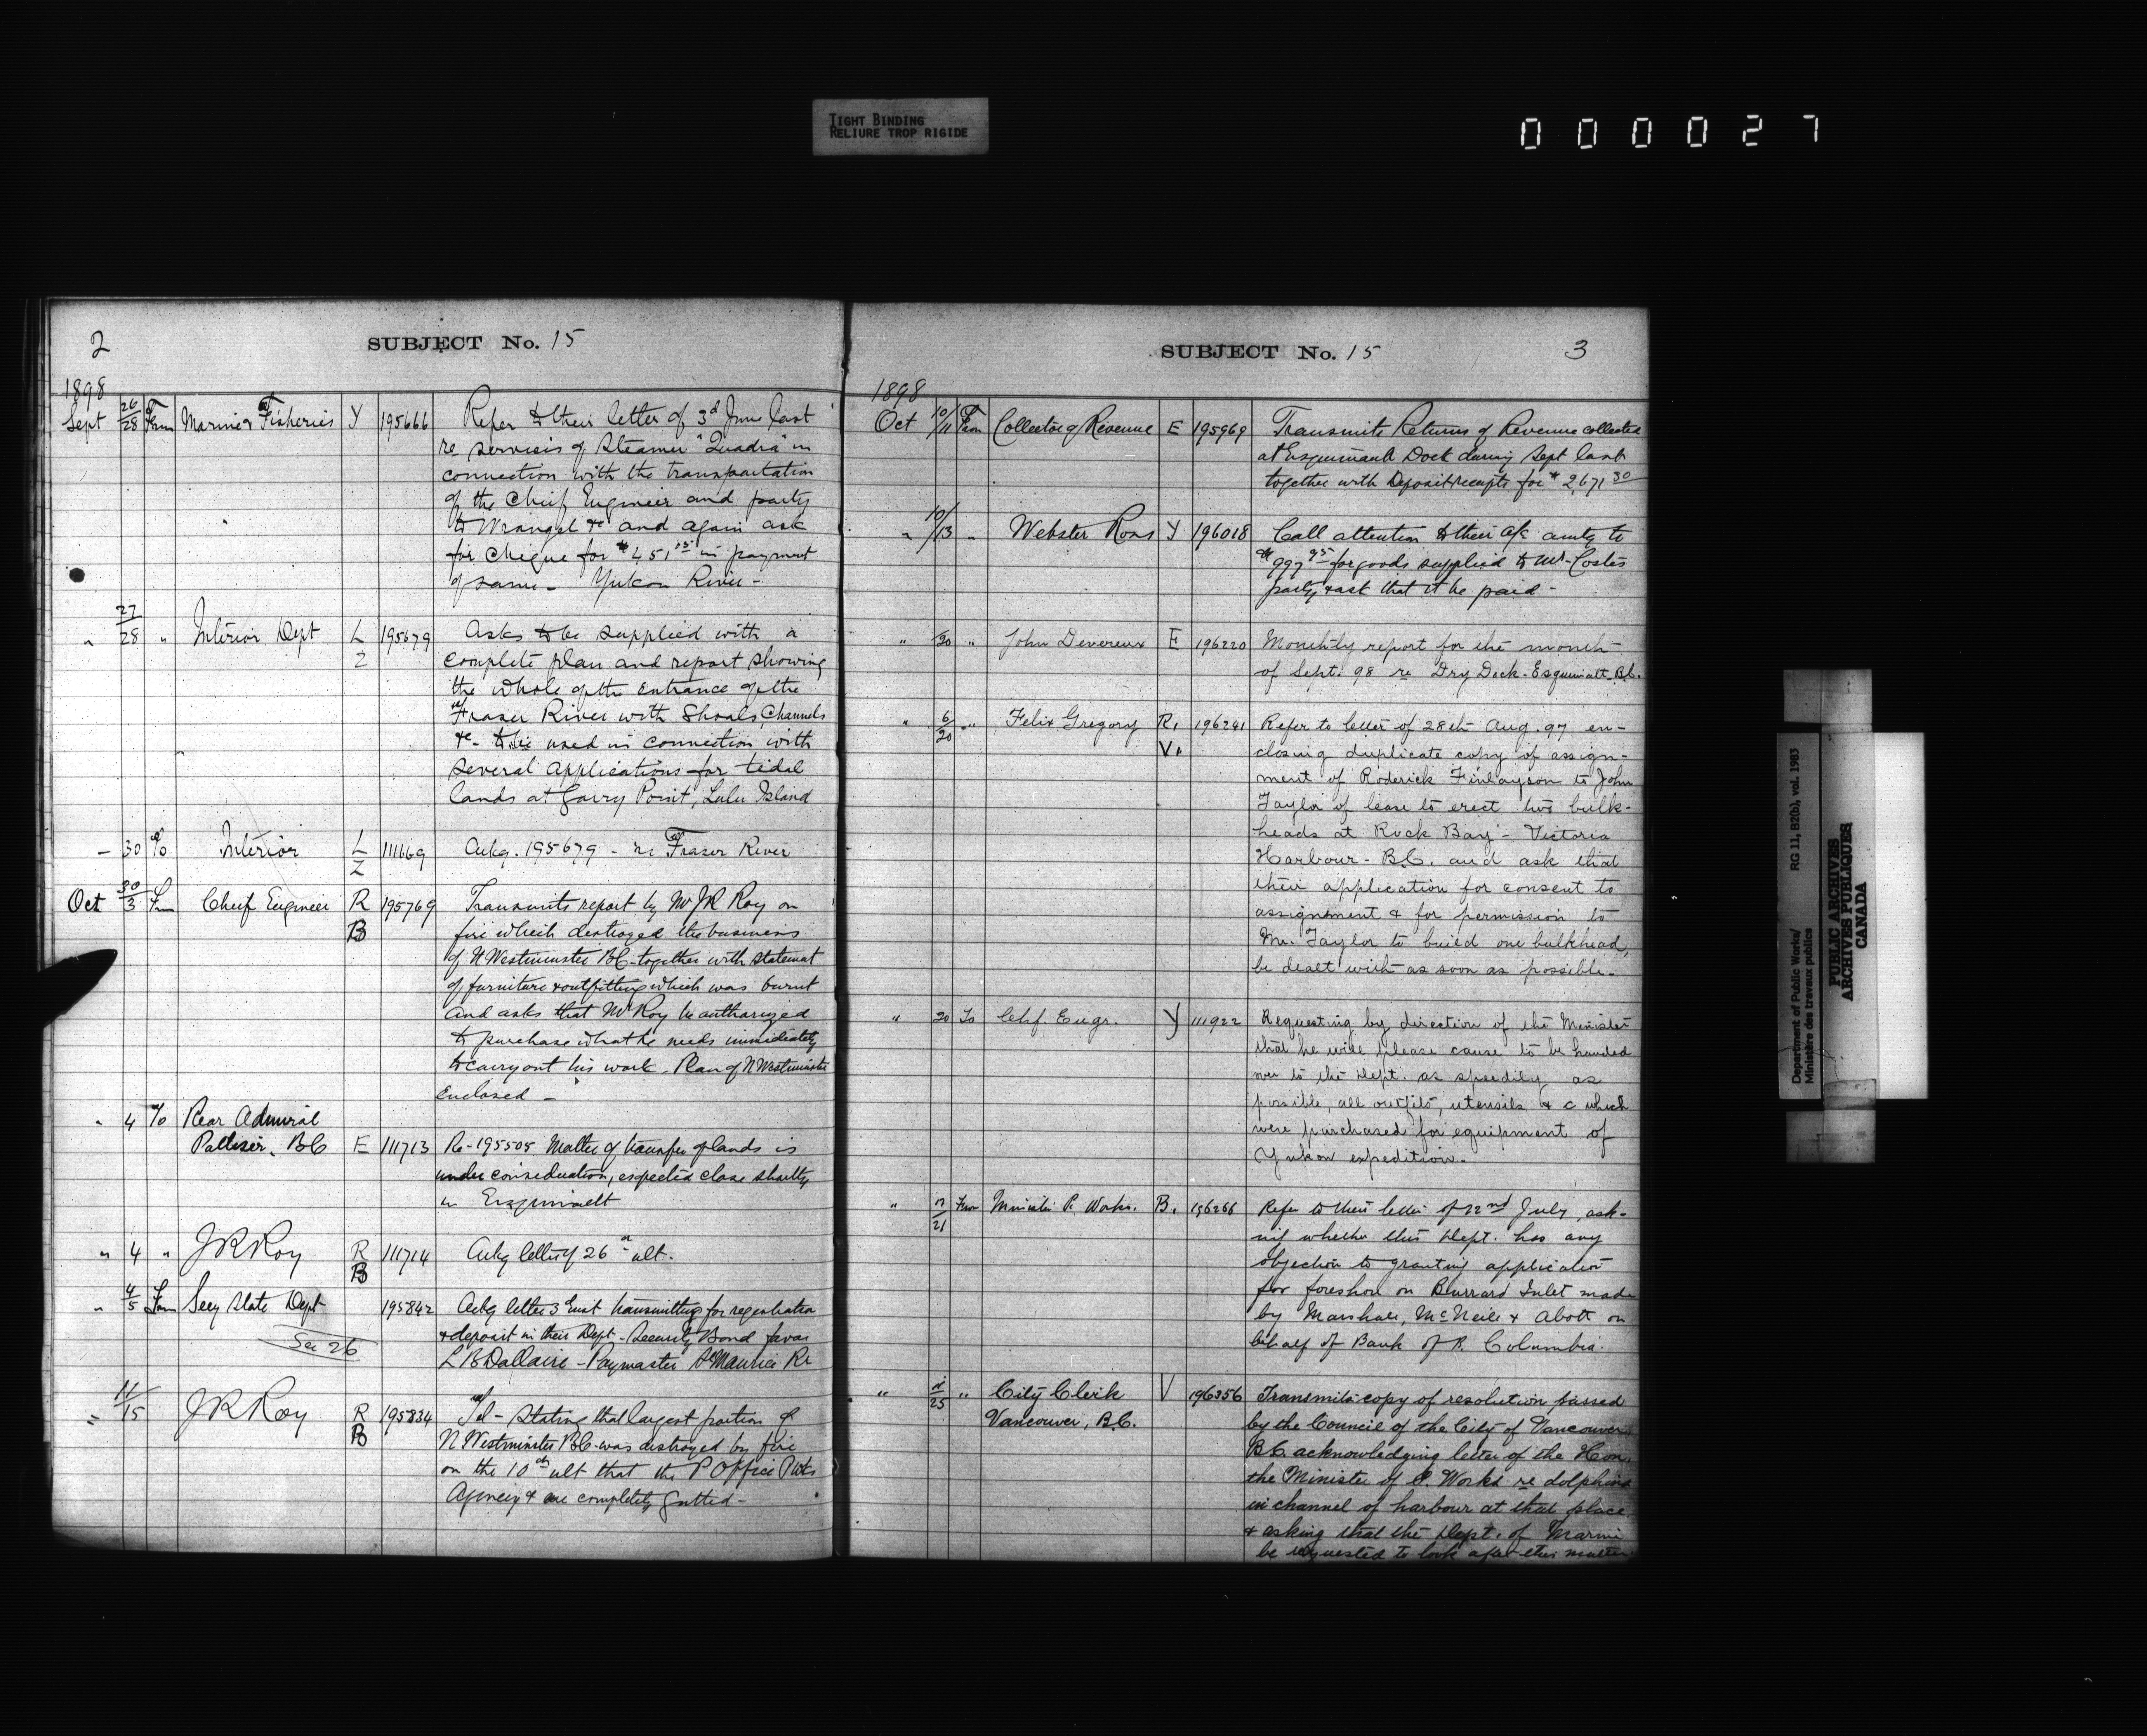 TIGHT BINDING
RELIURE TROP RIGIDE
000027
2
SUBJECT No. 15
1898
Sept 26/28 From Marine & Fisheries Y 195666 Refer to their letter of 3d June last
re services of Steamer "Quadra" in
connection with the transportation
of the Chief Engineer and party
to Wrangel &c and again ask
for cheque for $451 15 in payment
of same - Yukon River -
" 27/28 " Interior Dept L Z 195679 Asks to be supplied with a
complete plan and report showing
the whole of the entrance of the
Fraser River with Shoals, Channels
&c - to be used in connection with
several applications for tidal
lands at Garry Point, Lulu Island
- 30 To Interior L Z 111669 Ackg. 195679 - re Fraser River
Oct 30/3 Fm Chief Engineer R B 195769 Transmits report by Mr JR Roy on
fire which destroyed the business
of N Westminster BC - together with statement
of furniture & outfitting which was burnt
and asks that Mr Roy be authorized
to purchase what he needs immediately
to carry out his work. Plan of N Westminster
Enclosed -
" 4 To Rear Admiral
Palliser, BC E 111713 Re - 195505 Matter of transfer of lands is
under consideration, expected close shortly
Esquimalt
" 4 " JR Roy R B 111714 Ackg letter of 26th ult.
" 4/5 Fm Secy State Dept 195842 Ackg letter 3d inst transmitting for registration
& deposit in their Dept - Security Bond favor
See 26
L B Dallaire - Paymaster St Maurice Re
" 11/15 JR Roy R B 195834 Tel - Stating that largest portion of
N Westminster BC was destroyed by fire
on the 10th ult that the P Office P Wks
Agency & are completely gutted -
SUBJECT No. 15
3
1898
Oct 10/11 From Collector of Revenue E 195969 Transmits Returns of Revenue collected
at Esquimault Dock during Sept last
together with Deposit receipts for $2,671 30
" 10/13 " Webster Ross Y 196018 Call attention to their a/c amtg to
$997 95 for goods supplied to Mr Costes
party & ask that it be paid -
" /20 " John Devereux E 196220 Monthly report for the month
of Sept. 98 re Dry Dock - Esquimalt B.C.
" 6/20 " Felix Gregory R. V. 196241 Refer to letter of 28th Aug. 97 en-
closing duplicate copy of assign-
ment of Roderick Finlayson to John
Taylor of lease to erect two bulk-
heads at Rock Bay - Victoria
Harbour - B.C. and ask that
their application for consent to
assignment & for permission to
Mr. Taylor to build one bulkhead,
be dealt with as soon as possible.
" 20 To Chf. Engr. Y 111922 Requesting by direction of the Minister
that he will please cause to be handed
over to the Dept. as speedily as
possible, all outfits, utensils &c which
were purchased for equipment of
Yukon expedition.
" /21 From Minister P. Works. B. 196266 Refer to their letter of 22nd July, ask-
ing whether this Dept. has any
objection to granting application
for foreshore on Burrard Inlet made
by Marshall, McNeill & Abott on
behalf of Bank of B. Columbia.
" /25 " City Clerk V 196356 Transmits copy of resolution passed
Vancouver, B.C. by the Council of the City of Vancouver
B.C. acknowledging letter of the Hon.
the Minister of P. Works re dolphins
in channel of harbour at that place
& asking that the Dept. of Marine
be requested to look after this matter.
Department of Public Works/ RG 11, B2(b), vol. 1983
Ministère des travaux publics
PUBLIC ARCHIVES
ARCHIVES PUBLIQUES
CANADA